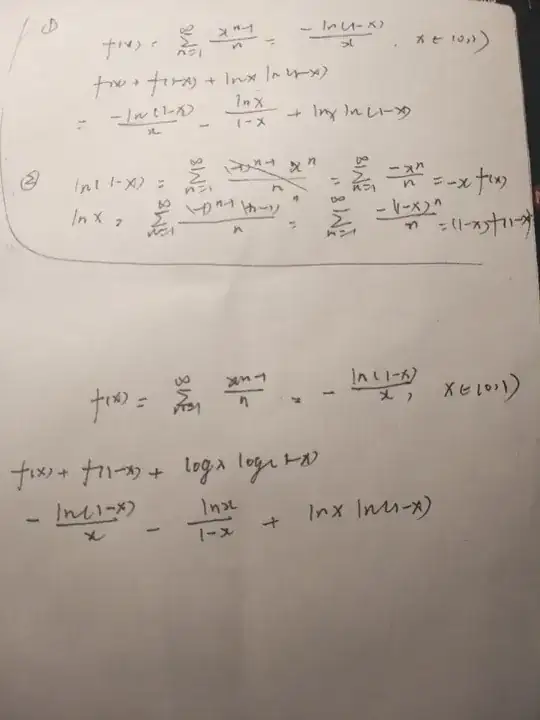 ①
f(x) = ∑_{n=1}^{∞} x^{n-1}/n = -ln(1-x)/x, x∈(0,1)
f(x) + f(1-x) + lnx ln(1-x)
= -ln(1-x)/x - lnx/(1-x) + lnx ln(1-x)
② ln(1-x) = ∑_{n=1}^{∞} (-1)^{n+1} x^n/n = ∑_{n=1}^{∞} -x^n/n = -x f(x)
lnx = ∑_{n=1}^{∞} (-1)^{n+1} (x-1)^n/n = ∑_{n=1}^{∞} -(1-x)^n/n = (1-x)f(1-x)
f(x) = ∑_{n=1}^{∞} x^{n-1}/n = - ln(1-x)/x, x∈(0,1)
f(x) + f(1-x) + logx log(1-x)
- ln(1-x)/x - lnx/(1-x) + lnx ln(1-x)